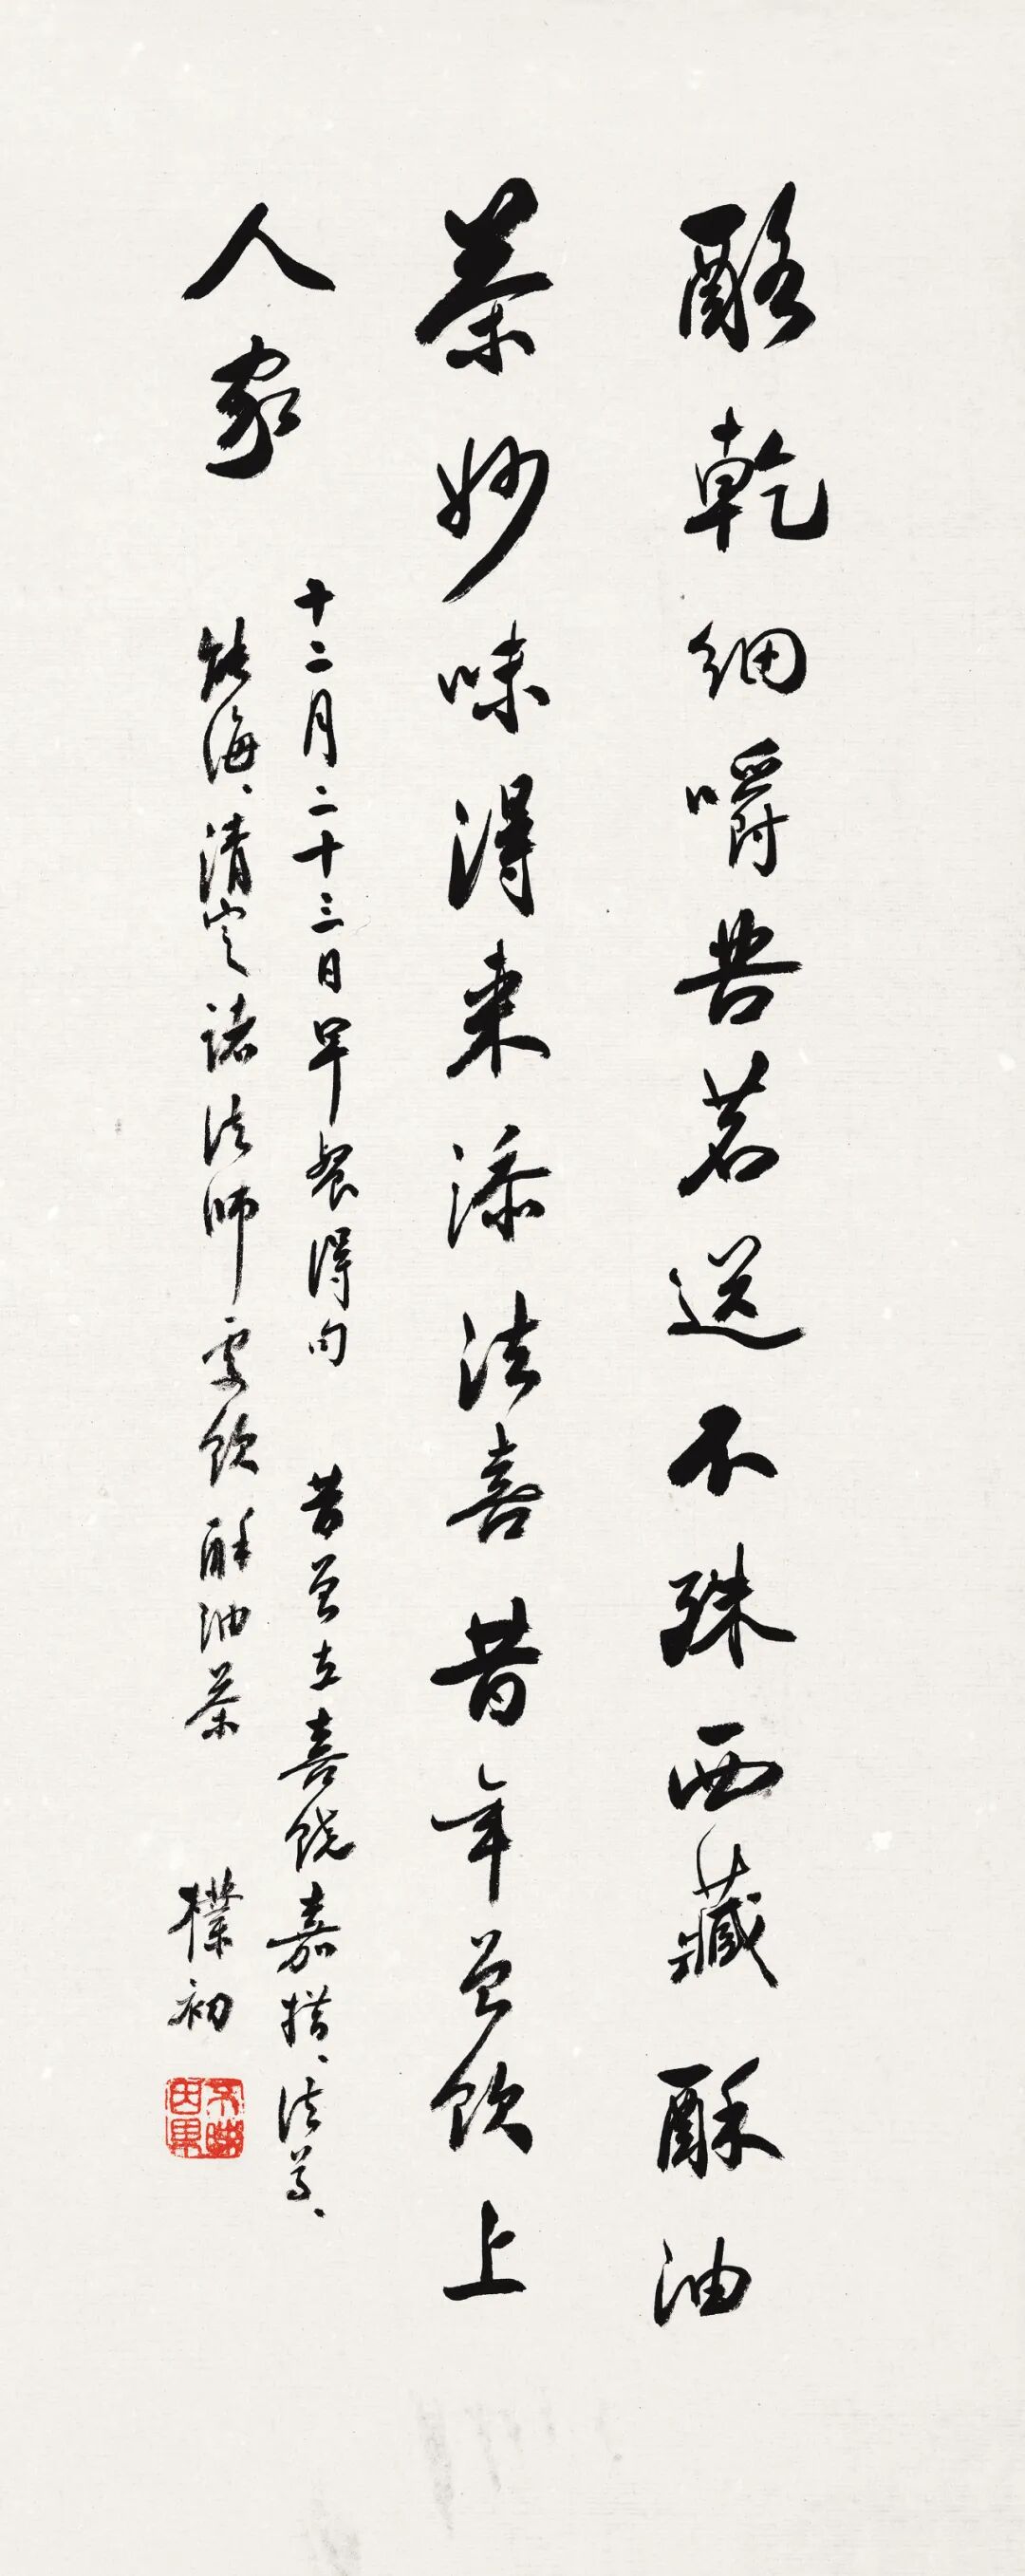 酪乾細嚼苦茗送不殊西藏酥油
茶妙味得來添法喜昔年曾飲上
人家
十二月二十三日早餐得句 昔曾在喜饒嘉措、法尊、
能海、清定諸法師處飲酥油茶 樸初
不昧因果